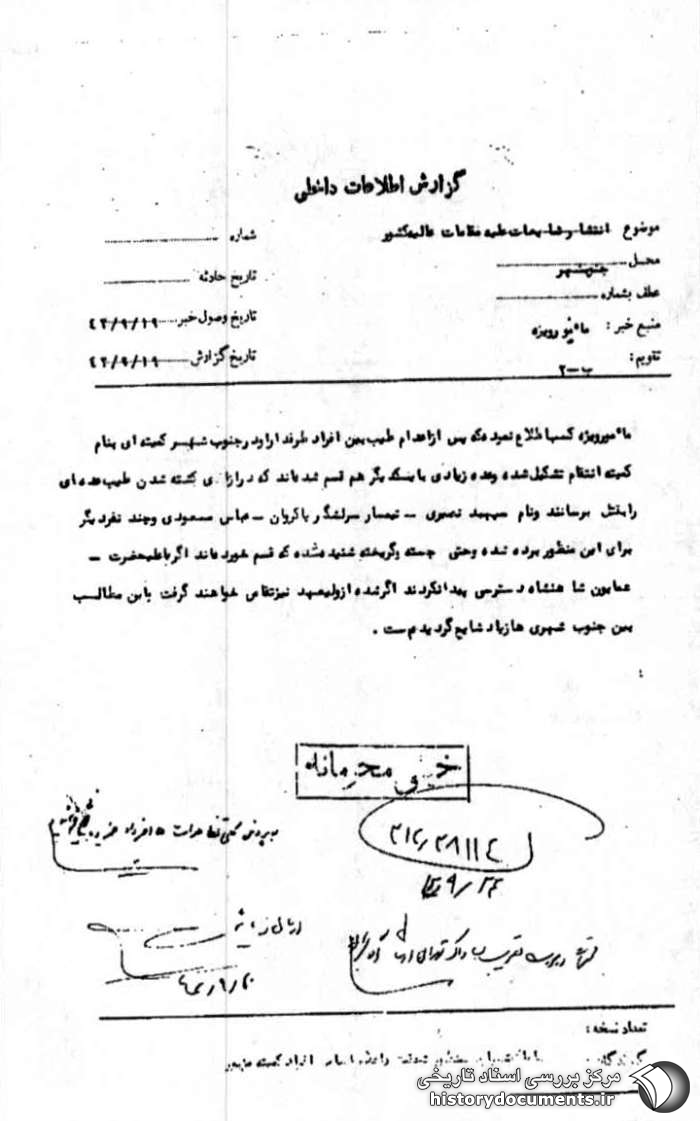 گزارش اطلاعات داخلی
موضوع انتشار شایعات علیه مقامات عالیه کشور
شماره
محل جنوبشهر
تاریخ حادثه
عطف بشماره
تاریخ وصول خبر ۴۲/۹/۱۹
منبع خبر: مأمور ویژه
تاریخ گزارش ۴۲/۹/۱۹
تقویم: ب-۲
مأمور ویژه کسب اطلاع نموده که پس از اعدام طیب بین افراد طرفدار او در جنوب شهر کمیته ای بنام
کمیته انتقام تشکیل شده وعده زیادی با یکدیگر هم قسم شده‌اند که در ازای کشته شدن طیب عده ای
را بقتل برسانند ونام سپهبد نصیری - تیمسار سرلشگر پاکروان - عباس مسعودی وچند نفر دیگر
برای این منظور برده شده وحتی جسته وگریخته شنیده شده که قسم خورده‌اند اگر باعلیحضرت -
همایون شاهنشاه دسترسی پیدا نکردند اگر شده از ولیعهد نیز تقاص خواهند گرفت این مطالب
بین جنوب شهری ها زیاد شایع گردیده‌است .
خیلی محرمانه
۳۱۲/۳۸۱۱۴
۹/۲۴
۴۲/۹/۲۰
تعداد نسخه:
گیرندگان:
مرکز بررسی اسناد تاریخی
historydocuments.ir